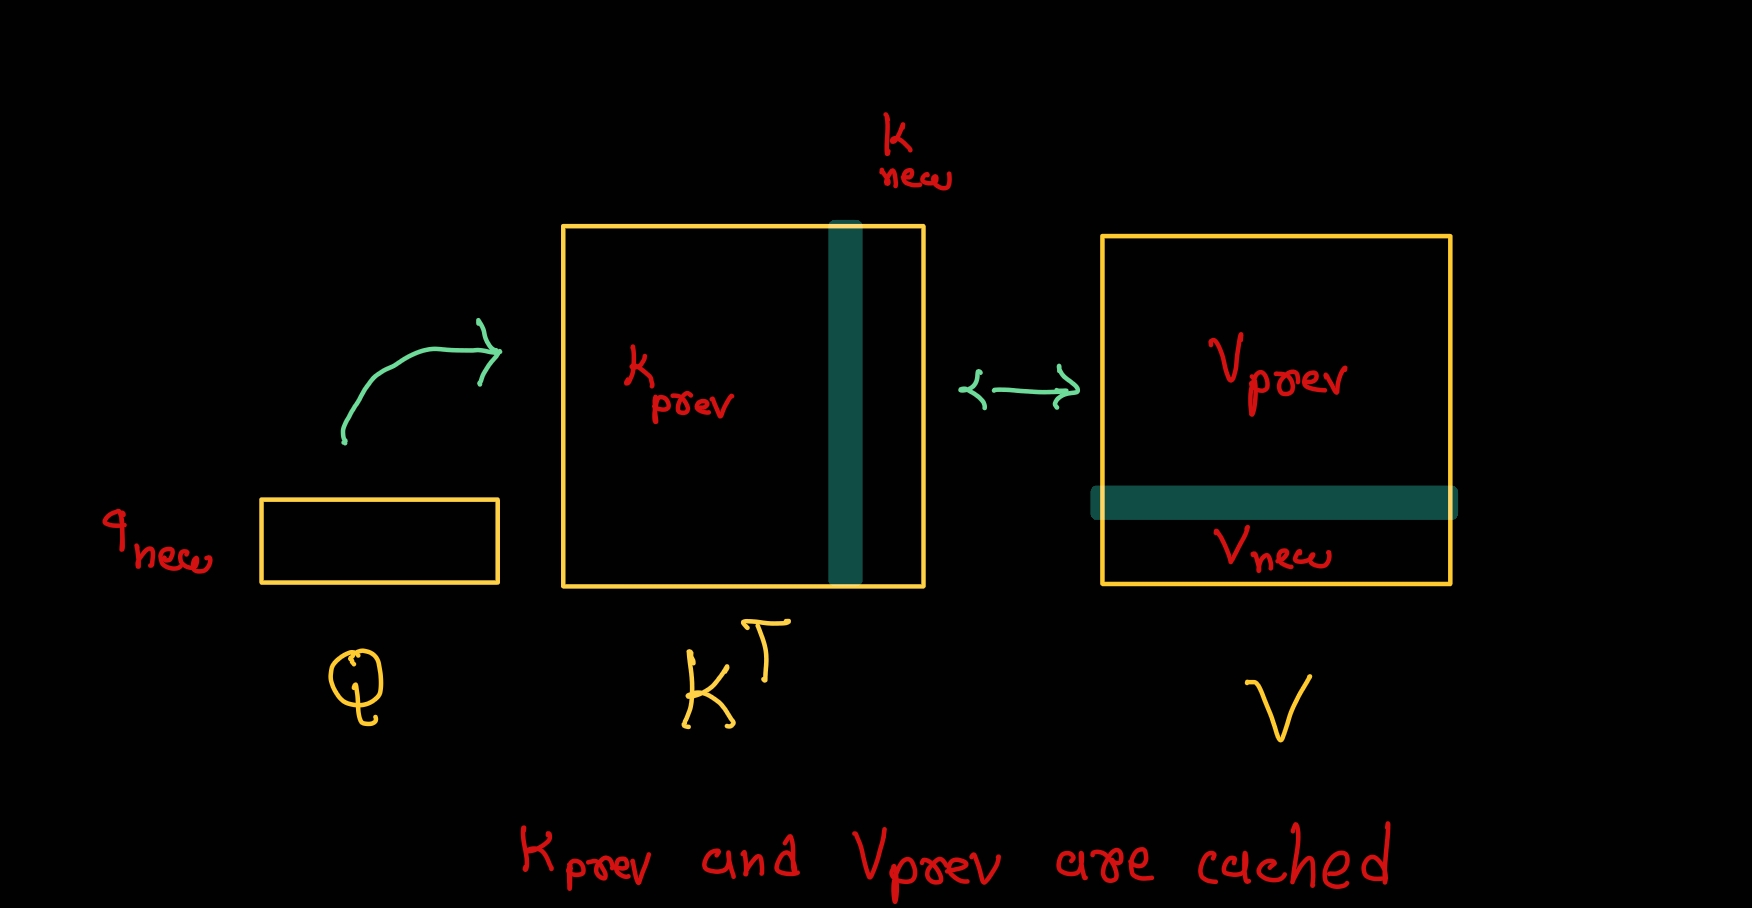 k
new
k
prev
V
prev
q
new
V
new
Q
K^T
V
K prev and V prev are cached